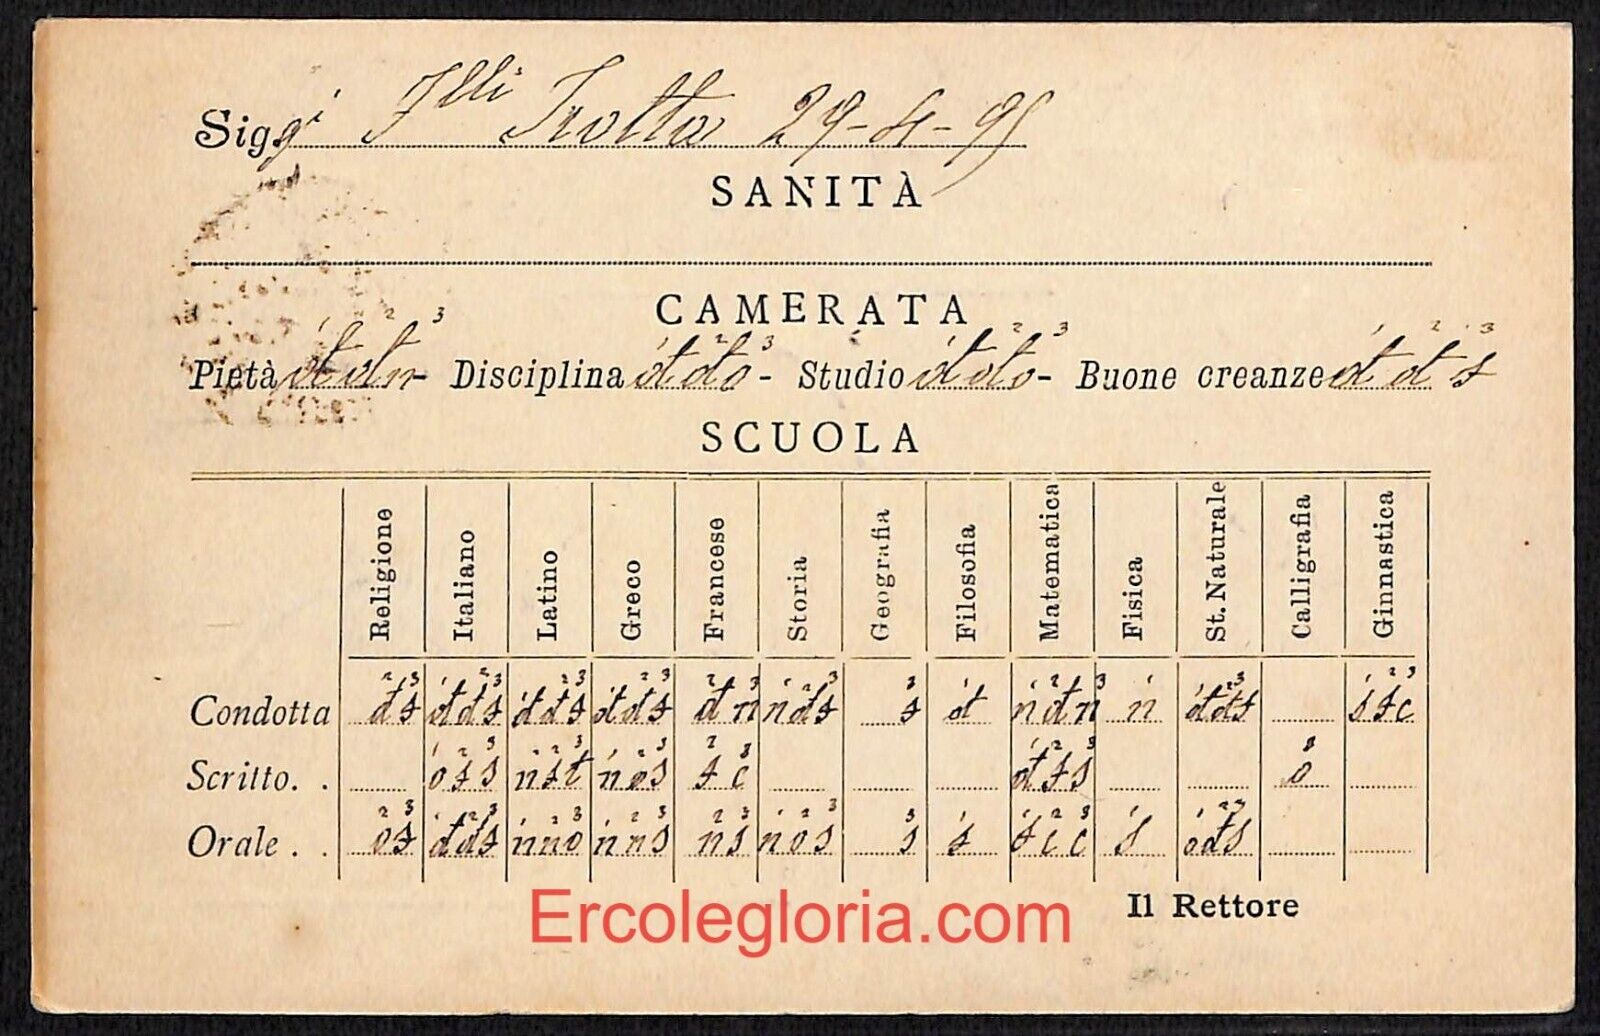 Sigg.i F.lli Trotta 29-4-95
SANITÀ
CAMERATA
1 2 3 1 2 3 1 2 3 1 2 3
Pietà d d n - Disciplina d d o - Studio d d o - Buone creanze d d s
SCUOLA
Religione Italiano Latino Greco Francese Storia Geografia Filosofia Matematica Fisica St. Naturale Calligrafia Ginnastica
Condotta d s d d s d d s d d s d n n d s s d n d n n d d s s s c
Scritto. . o s s n s t n o s s c d s s o
Orale . . o s d d s n n o n n s n s n o s s s s c c s o d s
Il Rettore
Ercolegloria.com